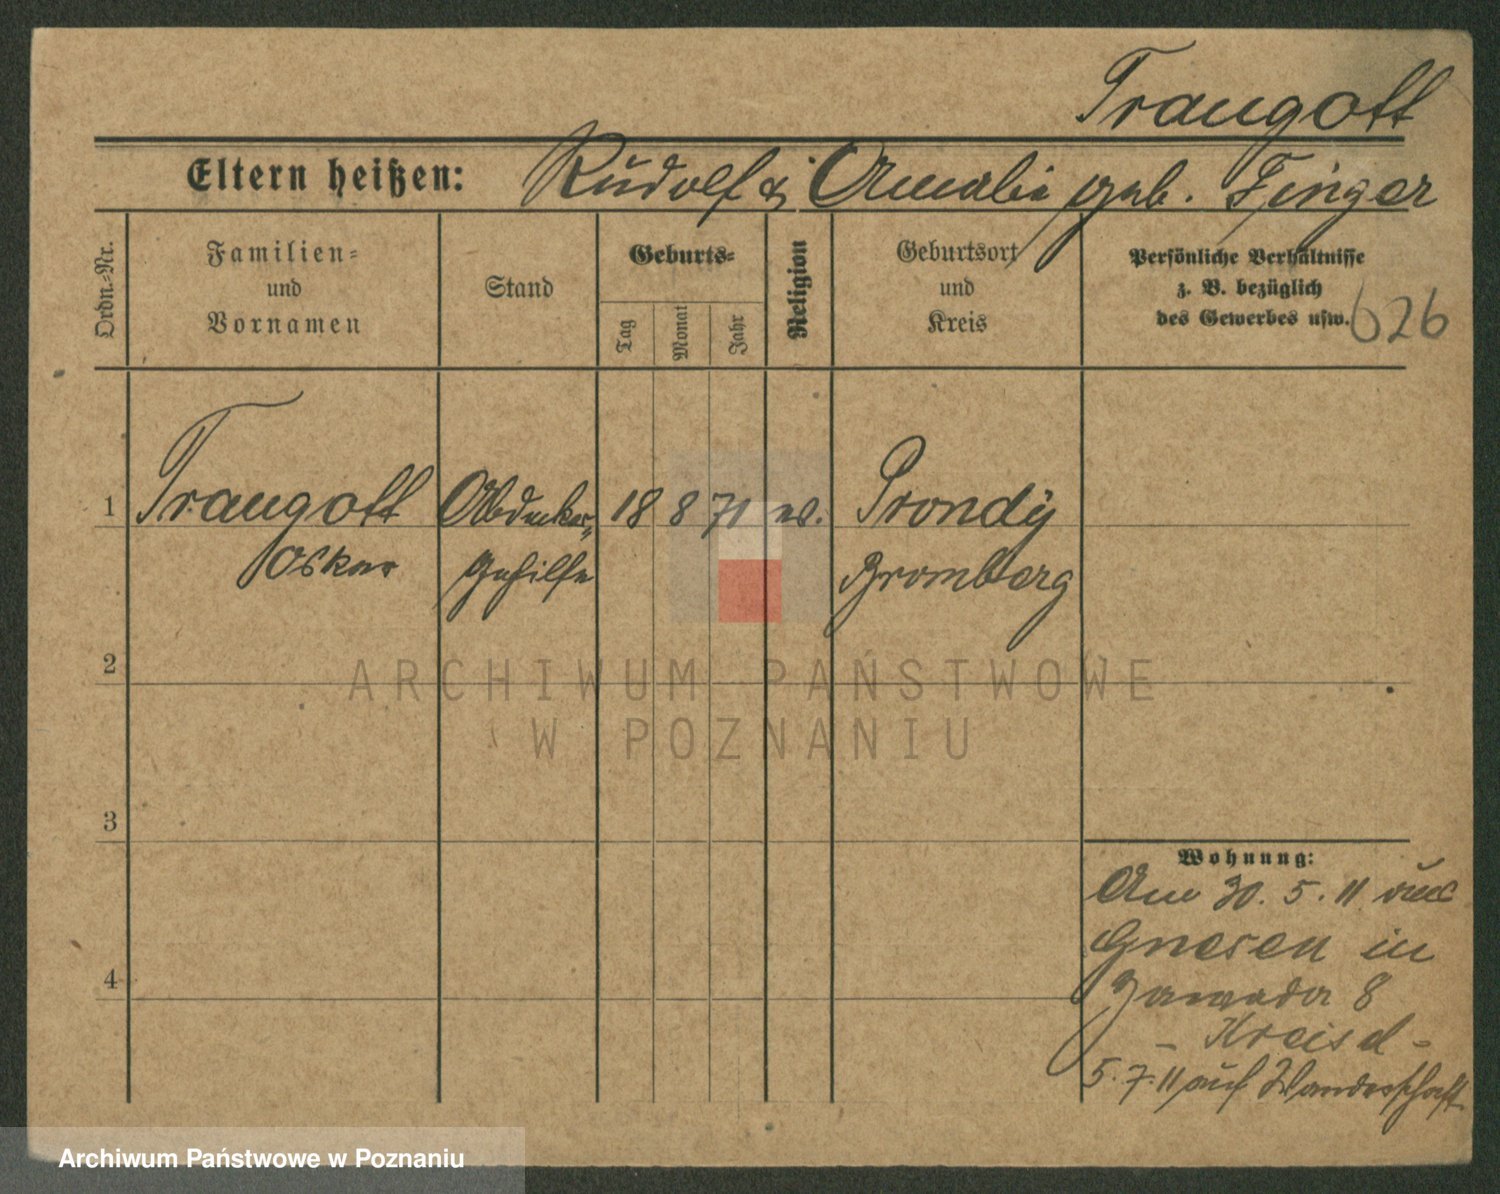 Traugott
Eltern heißen: Rudolf & Amalie geb. Finger
Ordn.=Nr.
Familien=
und
Vornamen
Stand
Geburts=
Tag
Monat
Jahr
Religion
Geburtsort
und
Kreis
Persönliche Verhältnisse
z. B. bezüglich
des Gewerbes usw.
626
1 Traugott Abdecker= 18 8 71 ev. Prondy
Oskar Gehilfe Bromberg
2
3
4
Wohnung:
Am 30. 5. 11 aus
Gnesen in
Zawada 8
5. 7. 11 auf Wanderschaft
ARCHIWUM PAŃSTWOWE
W POZNANIU
Archiwum Państwowe w Poznaniu